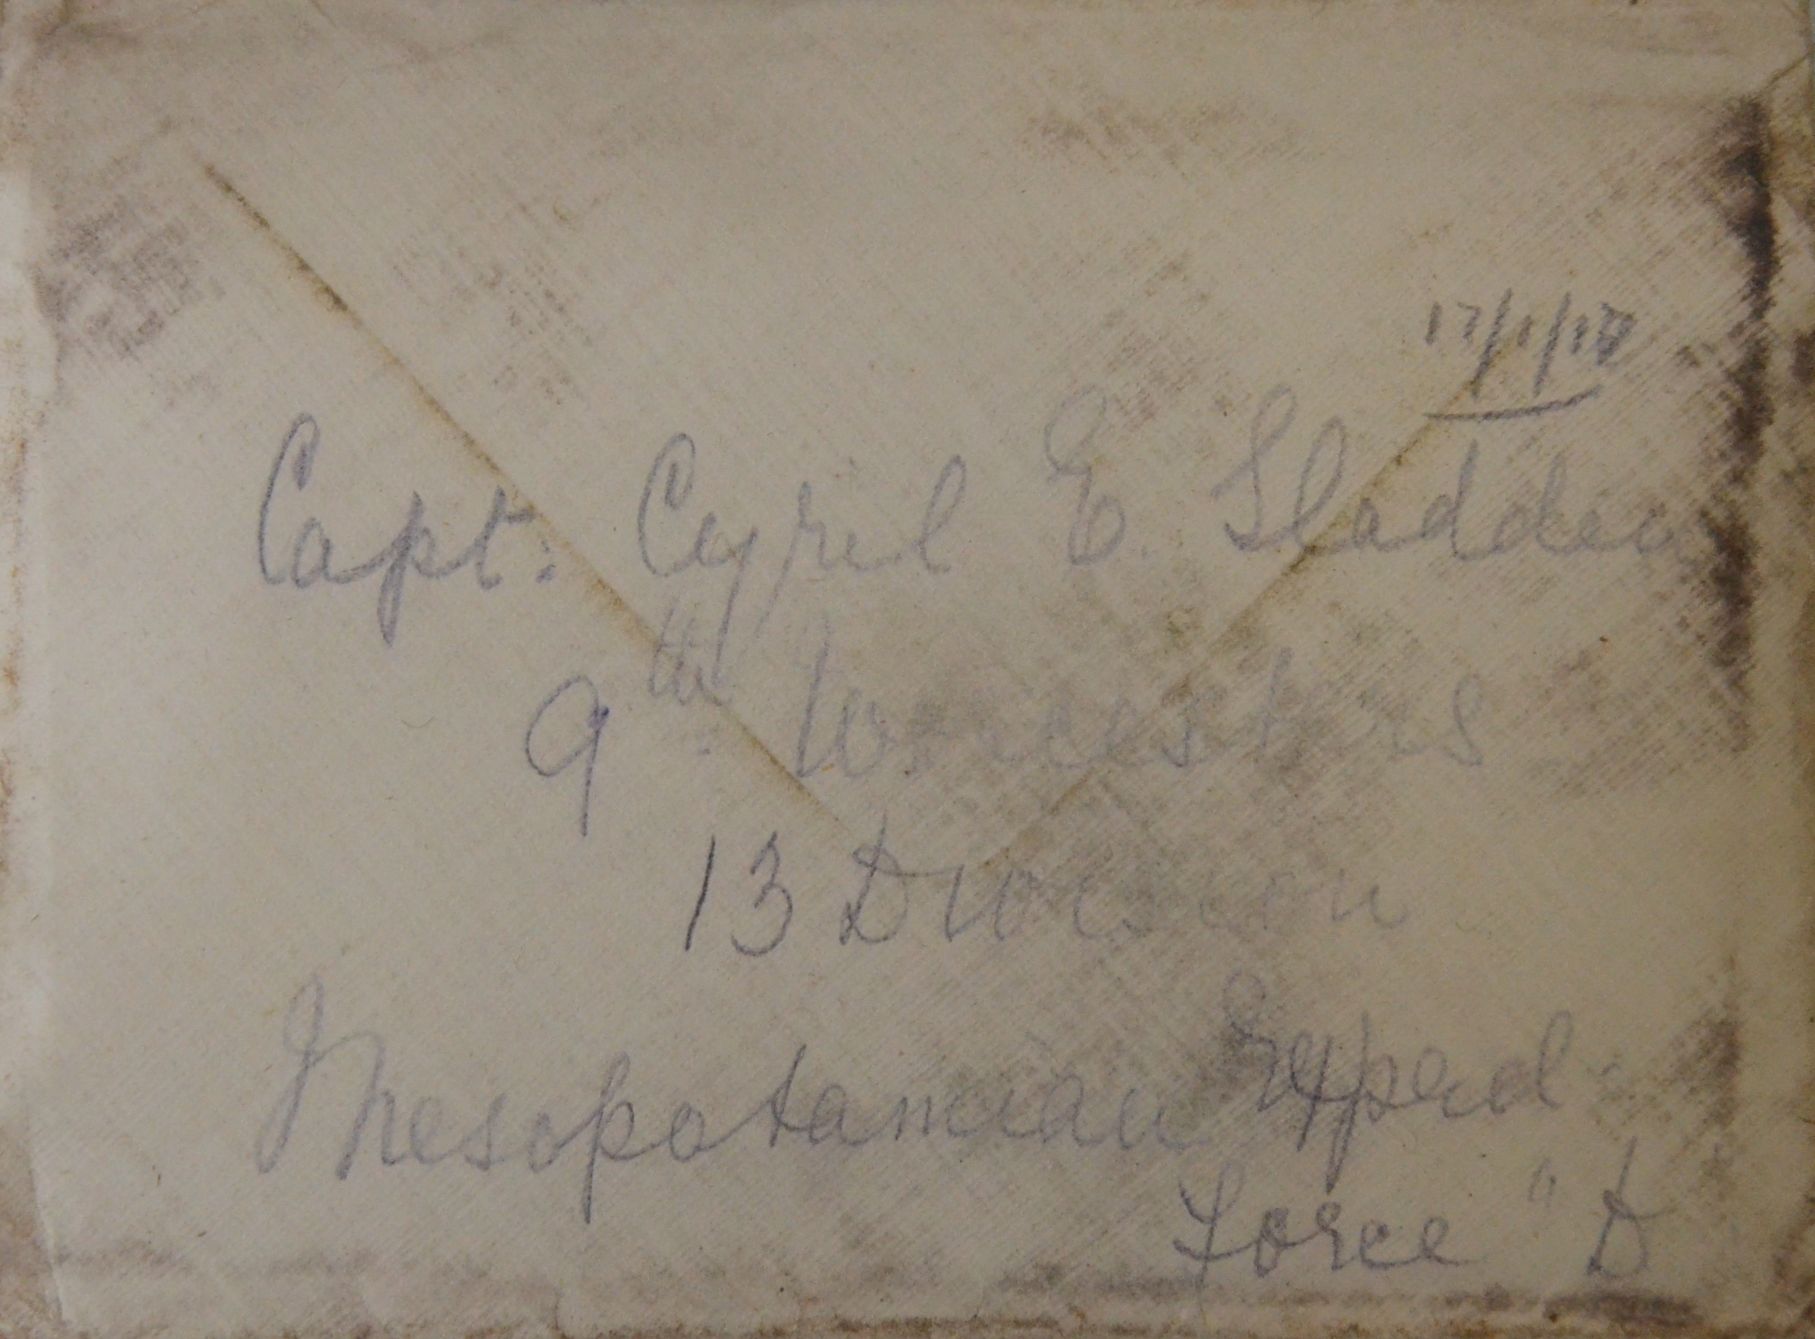 17/1/17
Capt. Cyril E. Sladden
9th. Worcesters
13 Division
Mesopotamian Exped.
Force "D